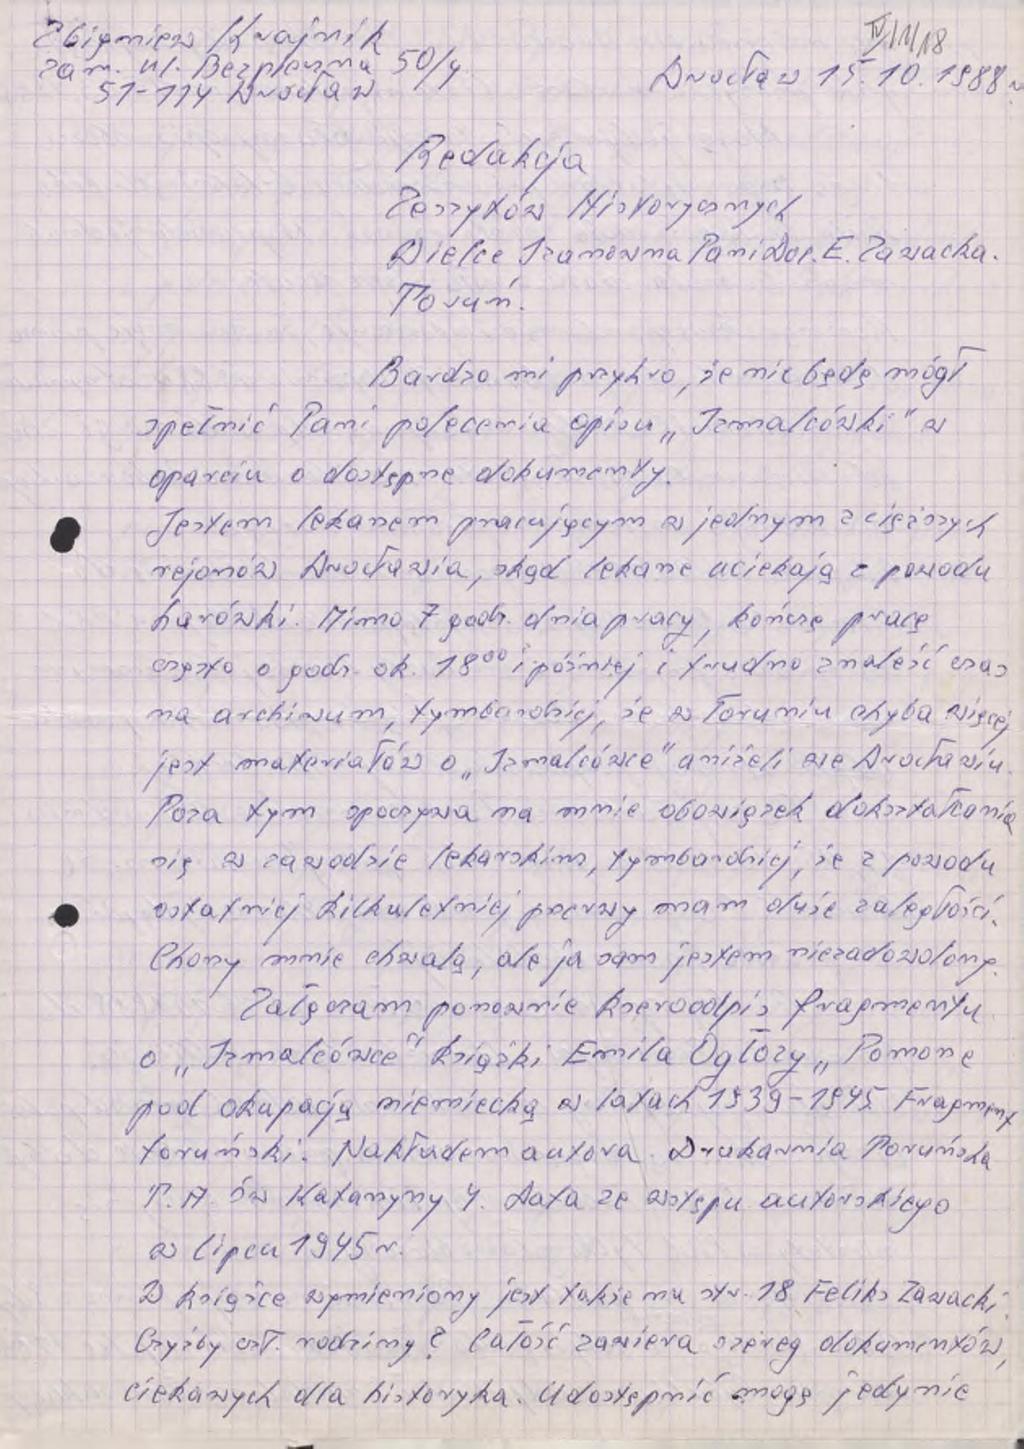 Zbigniew Krajnik
zam. ul. Bezpieczna 50/4
51-114 Wrocław
IV/11/18
Wrocław 15.10.1988 r.
Redakcja
Zeszytów Historycznych
Wielce Szanowna Pani Doc. E. Zawacka.
Toruń.
Bardzo mi przykro, że nie będę mógł
spełnić Pani polecenia opisu „Szmalcówki" w
oparciu o dostępne dokumenty.
Jestem lekarzem pracującym w jednym z cięższych
rejonów Wrocławia, skąd lekarze uciekają z powodu
harówki. Mimo 7 godz. dnia pracy, kończę pracę
często o godz. ok. 18⁰⁰ i później i trudno znaleść czas
na archiwum, tymbardziej, że w Toruniu chyba więcej
jest materiałów o „Szmalcówce" aniżeli we Wrocławiu.
Poza tym spoczywa na mnie obowiązek dokształcania
się w zawodzie lekarskim, tymbardziej, że z powodu
ostatniej kilkuletniej przerwy mam duże zaległości.
Chorzy mnie chwalą, ale ja sam jestem niezadowolony.
Załączam ponownie kseroodpis fragmentu
o „Szmalcówce" książki Emila Ogłozy „Pomorze
pod okupacją niemiecką w latach 1939-1945 Fragment
toruński. Nakładem autora. Drukarnia Toruńska
T.A. św Katarzyny 4. Data ze wstępu autorskiego
w lipcu 1945 r.
W książce wymieniony jest także na str. 18 Feliks Zawacki.
Czyżby czł. rodziny? Całość zawiera szereg dokumentów,
ciekawych dla historyka. Udostępnić mogę jedynie